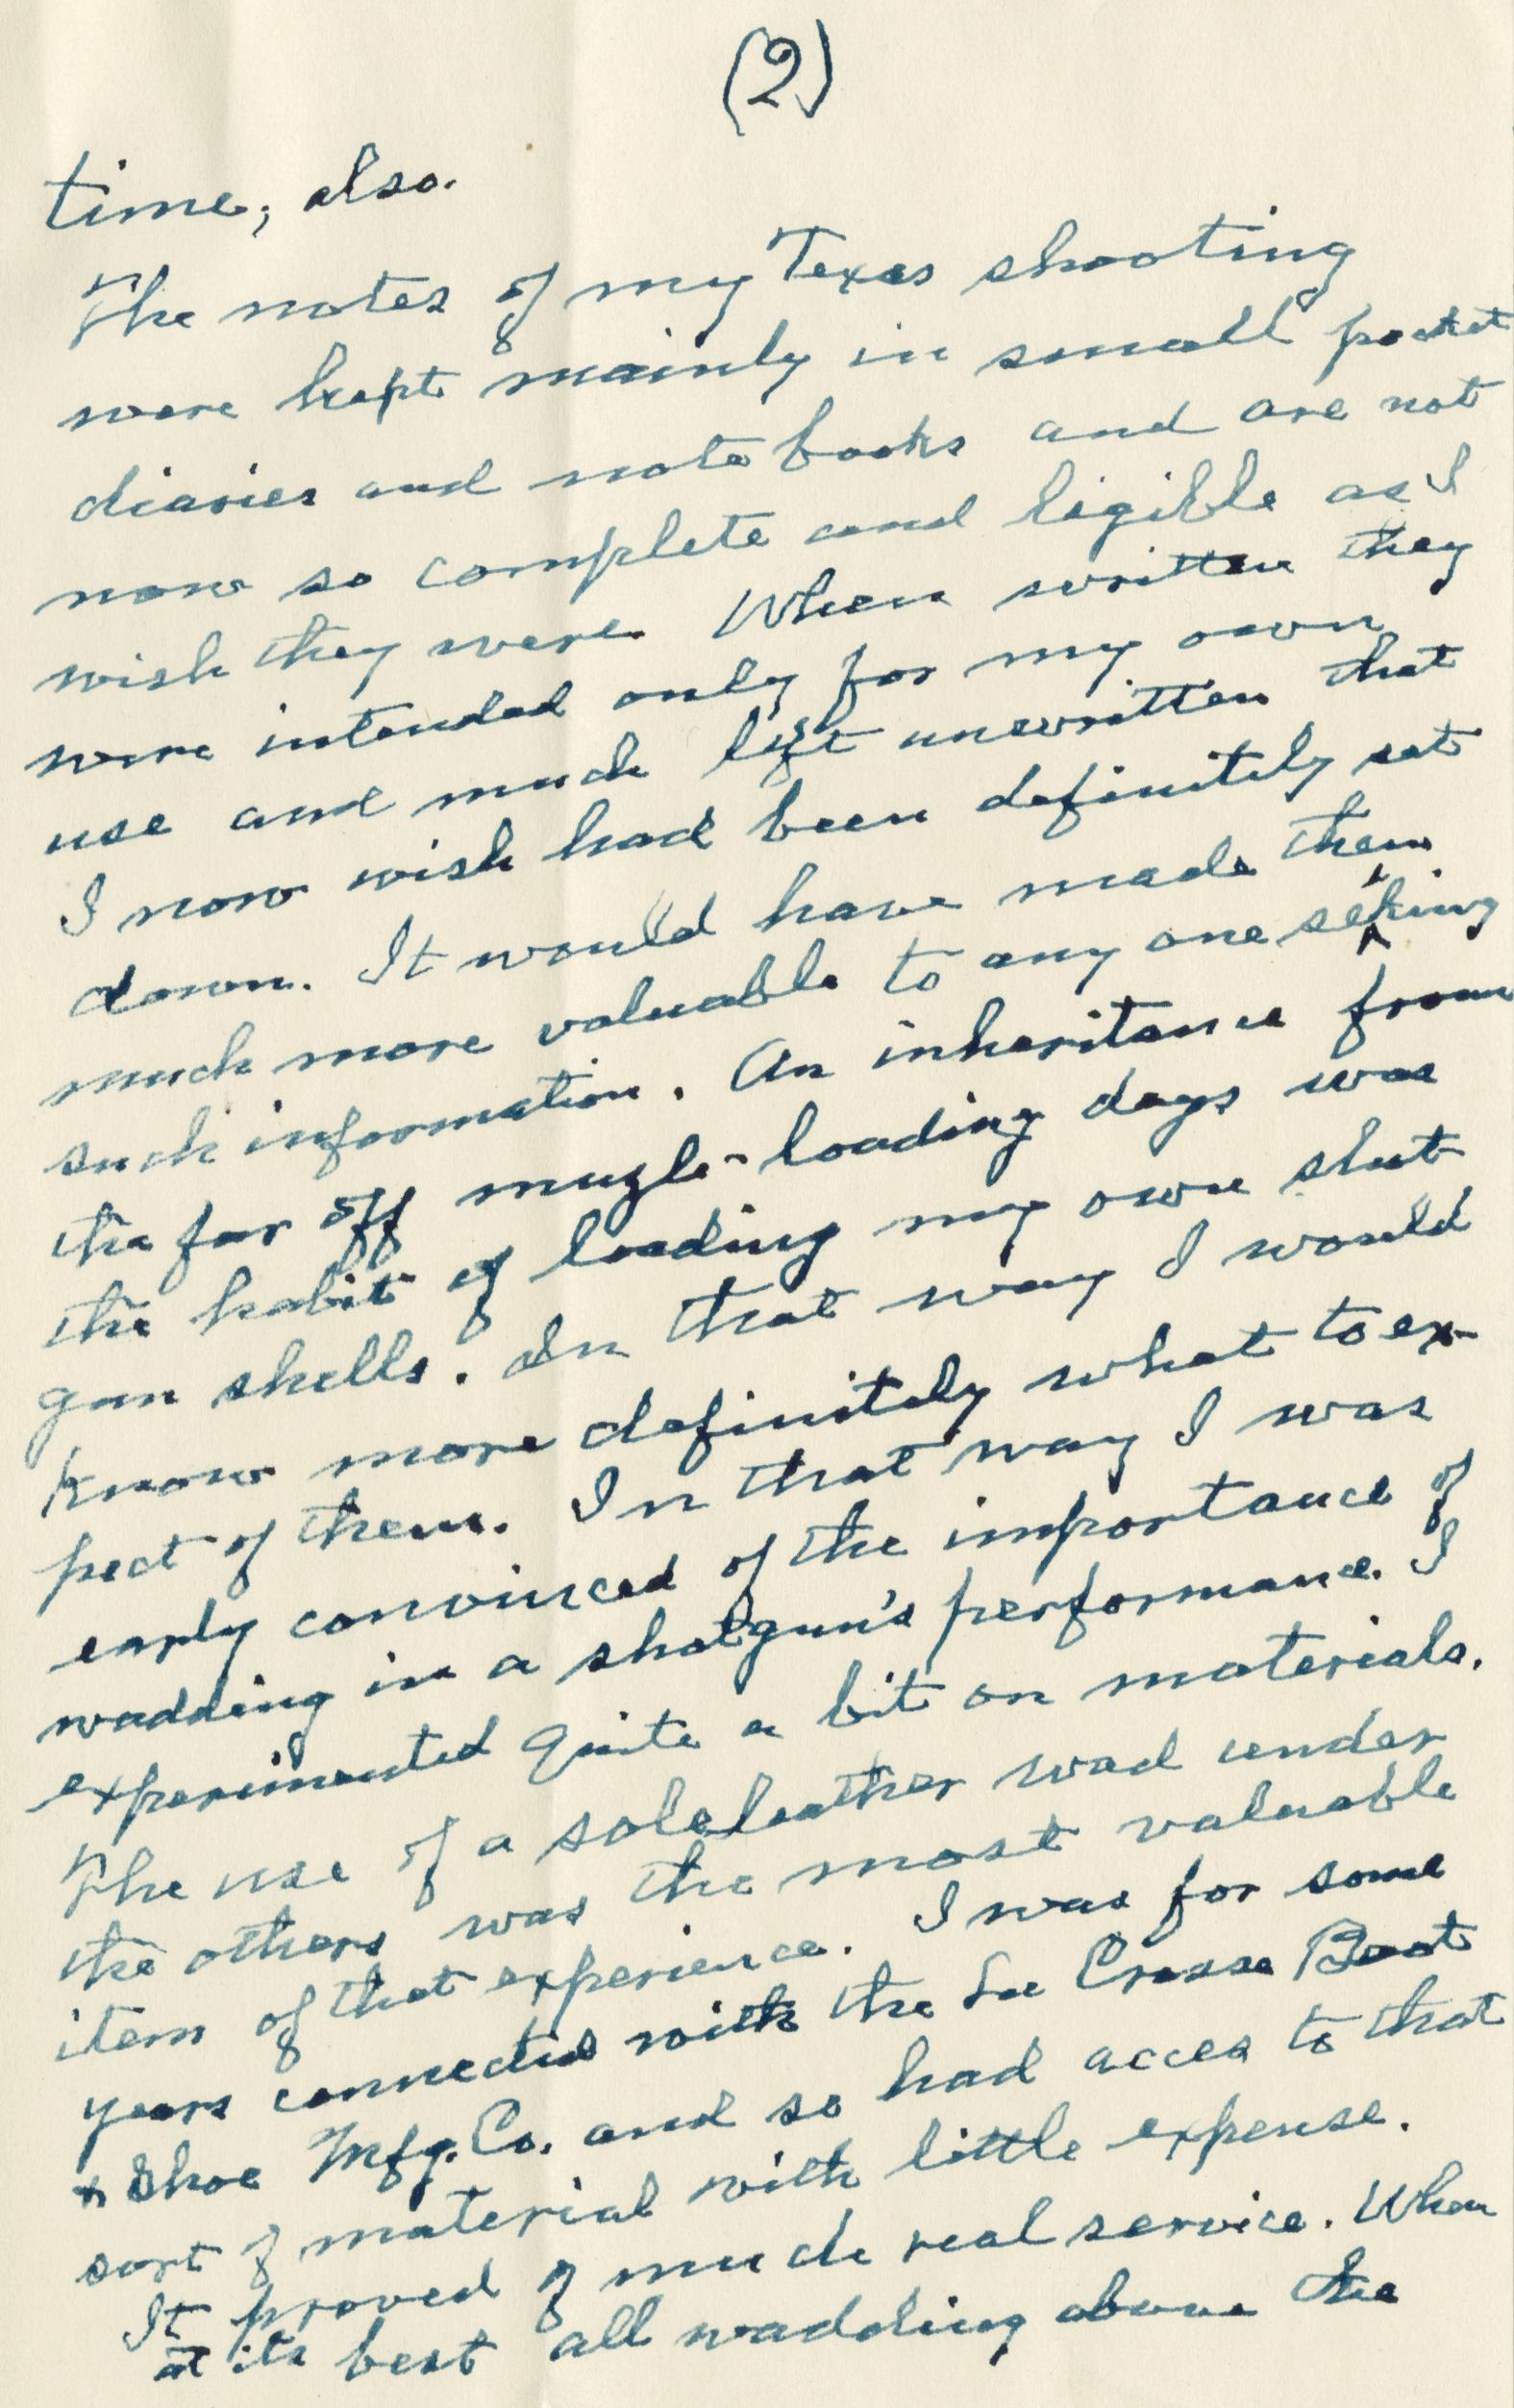 (2)
time, also.
The notes of my Texas shooting
were kept mainly in small pocket
diaries and note books and are not
now so complete and ligible as I
wish they were. When written they
were intended only for my own
use and much left unwritten that
I now wish had been definitely set
down. It would have made them
much more valuable to any one seking
such information. An inheritance from
the far off muzle-loading days was
the habit of loading my own shot
gun shells. In that way I would
know more definitely what to ex-
pect of them. In that way I was
early convinced of the importance of
wadding in a shotgun's performance. I
experimented quite a bit on materials.
The use of a sole leather wad under
the others was the most valuable
item of that experience. I was for some
years connected with the La Crosse Boot
& Shoe Mfg. Co. and so had acces to that
sort of material with little expense.
It proved of much real service. When
at its best all wadding above the